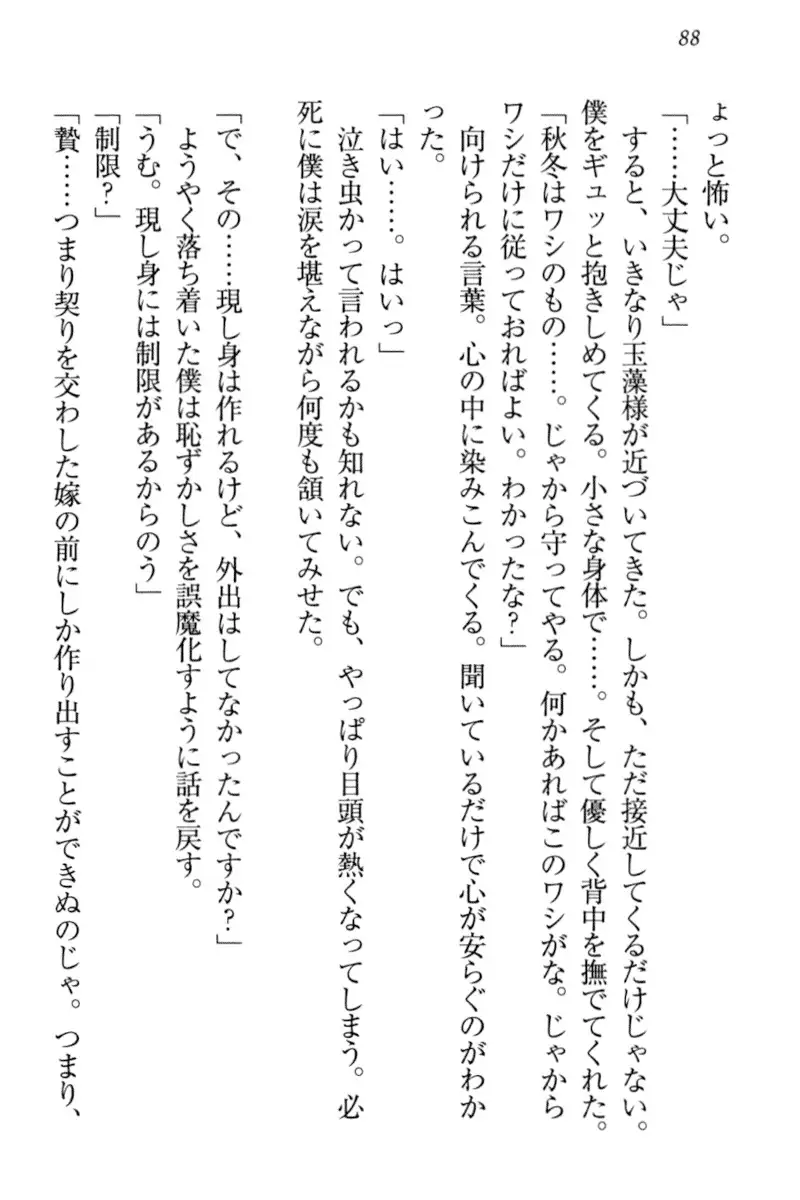 88
ょっと怖い。
「……大丈夫じゃ」
すると、いきなり玉藻様が近づいてきた。しかも、ただ接近してくるだけじゃない。
僕をギュッと抱きしめてくる。小さな身体で……。そして優しく背中を撫でてくれた。
「秋冬はワシのもの……。じゃから守ってやる。何かあればこのワシがな。じゃから
ワシだけに従っておればよい。わかったな？」
向けられる言葉。心の中に染みこんでくる。聞いているだけで心が安らぐのがわか
った。
「はい……。はいっ」
泣き虫かって言われるかも知れない。でも、やっぱり目頭が熱くなってしまう。必
死に僕は涙を堪えながら何度も頷いてみせた。
「で、その……現し身は作れるけど、外出はしてなかったんですか？」
ようやく落ち着いた僕は恥ずかしさを誤魔化すように話を戻す。
「うむ。現し身には制限があるからのう」
「制限？」
「贄……つまり契りを交わした嫁の前にしか作り出すことができぬのじゃ。つまり、